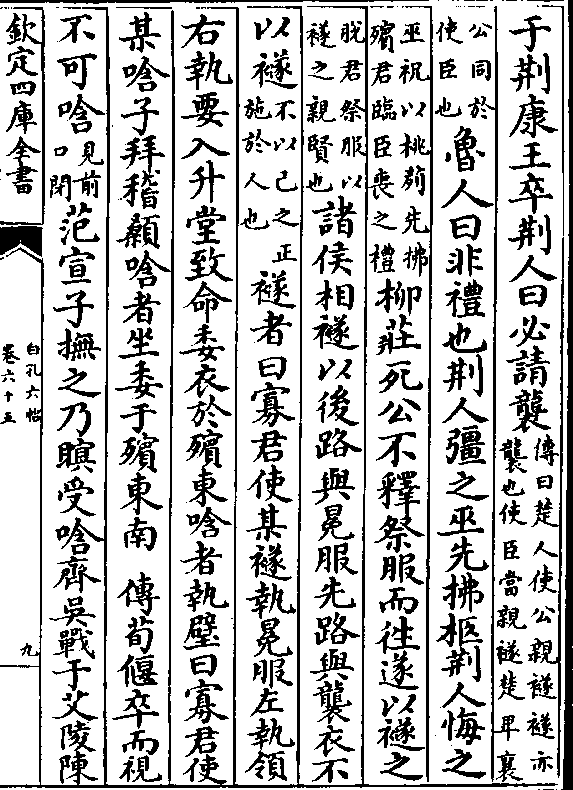 于荆康王卒荆人曰必請襲傳曰楚人使公親襚襚亦襲也使臣當親襚楚卑襄
公同於使臣也魯人曰非禮也荆人彊之巫先拂柩荆人悔之
巫祝以桃茢先拂殯君臨臣喪之禮柳莊死公不釋祭服而徃遂以襚之
脱君祭服以襚之親賢也諸侯相襚以後路與冕服先路與襲衣不
以襚不以己之正施於人也襚者曰寡君使某襚執冕服左執領
右執要入升堂致命委衣於殯東唅者執壁曰寡君使
某唅子拜稽顙唅者坐委于殯東南 傳荀偃卒而視
不可唅見前口閉范宣子撫之乃瞑受唅齊吳戰于艾陵陳
欽定四庫全書
白孔六帖
卷六十五
九